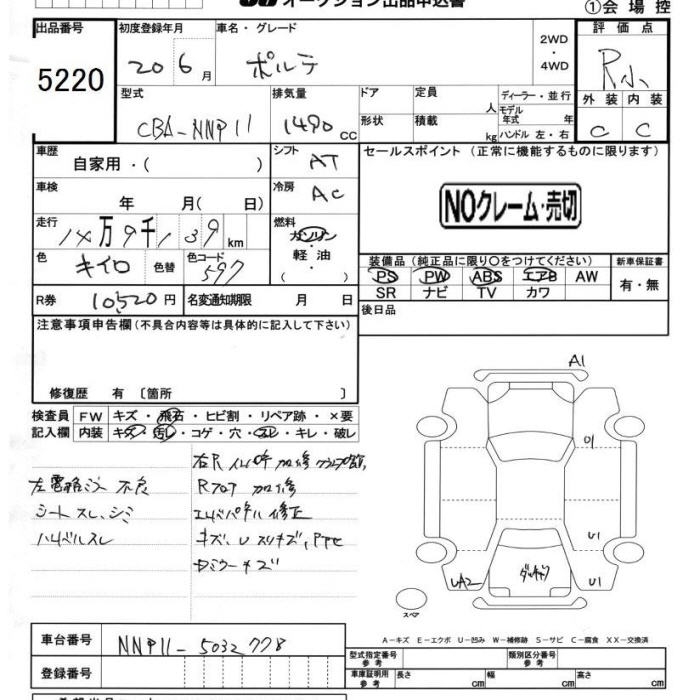 オークション出品申込書
①会場控
出品番号
5220
初度登録年月
20 6月
車名・グレード
ポルテ
2WD
・
4WD
評価点
R小
外装 内装
C C
型式
CBA-NNP11
排気量
1490 cc
ドア
形状
定員 人
積載 kg
ディーラー・並行
モデル年式 年
ハンドル 左・右
車歴
自家用・( )
シフト
AT
セールスポイント (正常に機能するものに限ります)
NOクレーム・売切
車検
年 月( 日)
冷房
AC
走行
14万9千139km
燃料
ガソリン
・
軽油
( )
色
キイロ
色替
色コード
597
装備品(純正品に限り○をつけてください)
PS PW ABS エアB AW
SR ナビ TV カワ
新車保証書
有・無
R券 10,520円
名変通知期限 月 日
後日品
注意事項申告欄(不具合内容等は具体的に記入して下さい)
修復歴 有 〔箇所 〕
検査員
記入欄
FW キズ・飛石・ヒビ割・リペア跡・×要
内装 キズ・汚し・コゲ・穴・スレ・キレ・破し
左電格ミラー不良
シートスレ、シミ
ハンドルスレ
Rフロア 加修
エンドパネル修正
キズ、Uスリキズ、
ミラーキズ
A1
U1
U1
UA2
U1
スペア
A-キズ E-エクボ U-凹み W-補修跡 S-サビ C-腐食 XX-交換済
車台番号
NNP11-5032778
登録番号
型式指定番号
参考
類別区分番号
参考
車庫証明用
参考
長さ cm
幅 cm
高さ cm